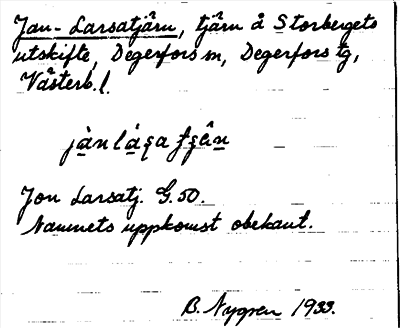 Jan-Larsatjärn, tjärn å Storbergets
utskifte, Degerfors sn, Degerfors tg,
Västerb. l.
jànlásạ
Jon Larsatj. G.50.
Namnets uppkomst obekant.
B. Nygren 1933.